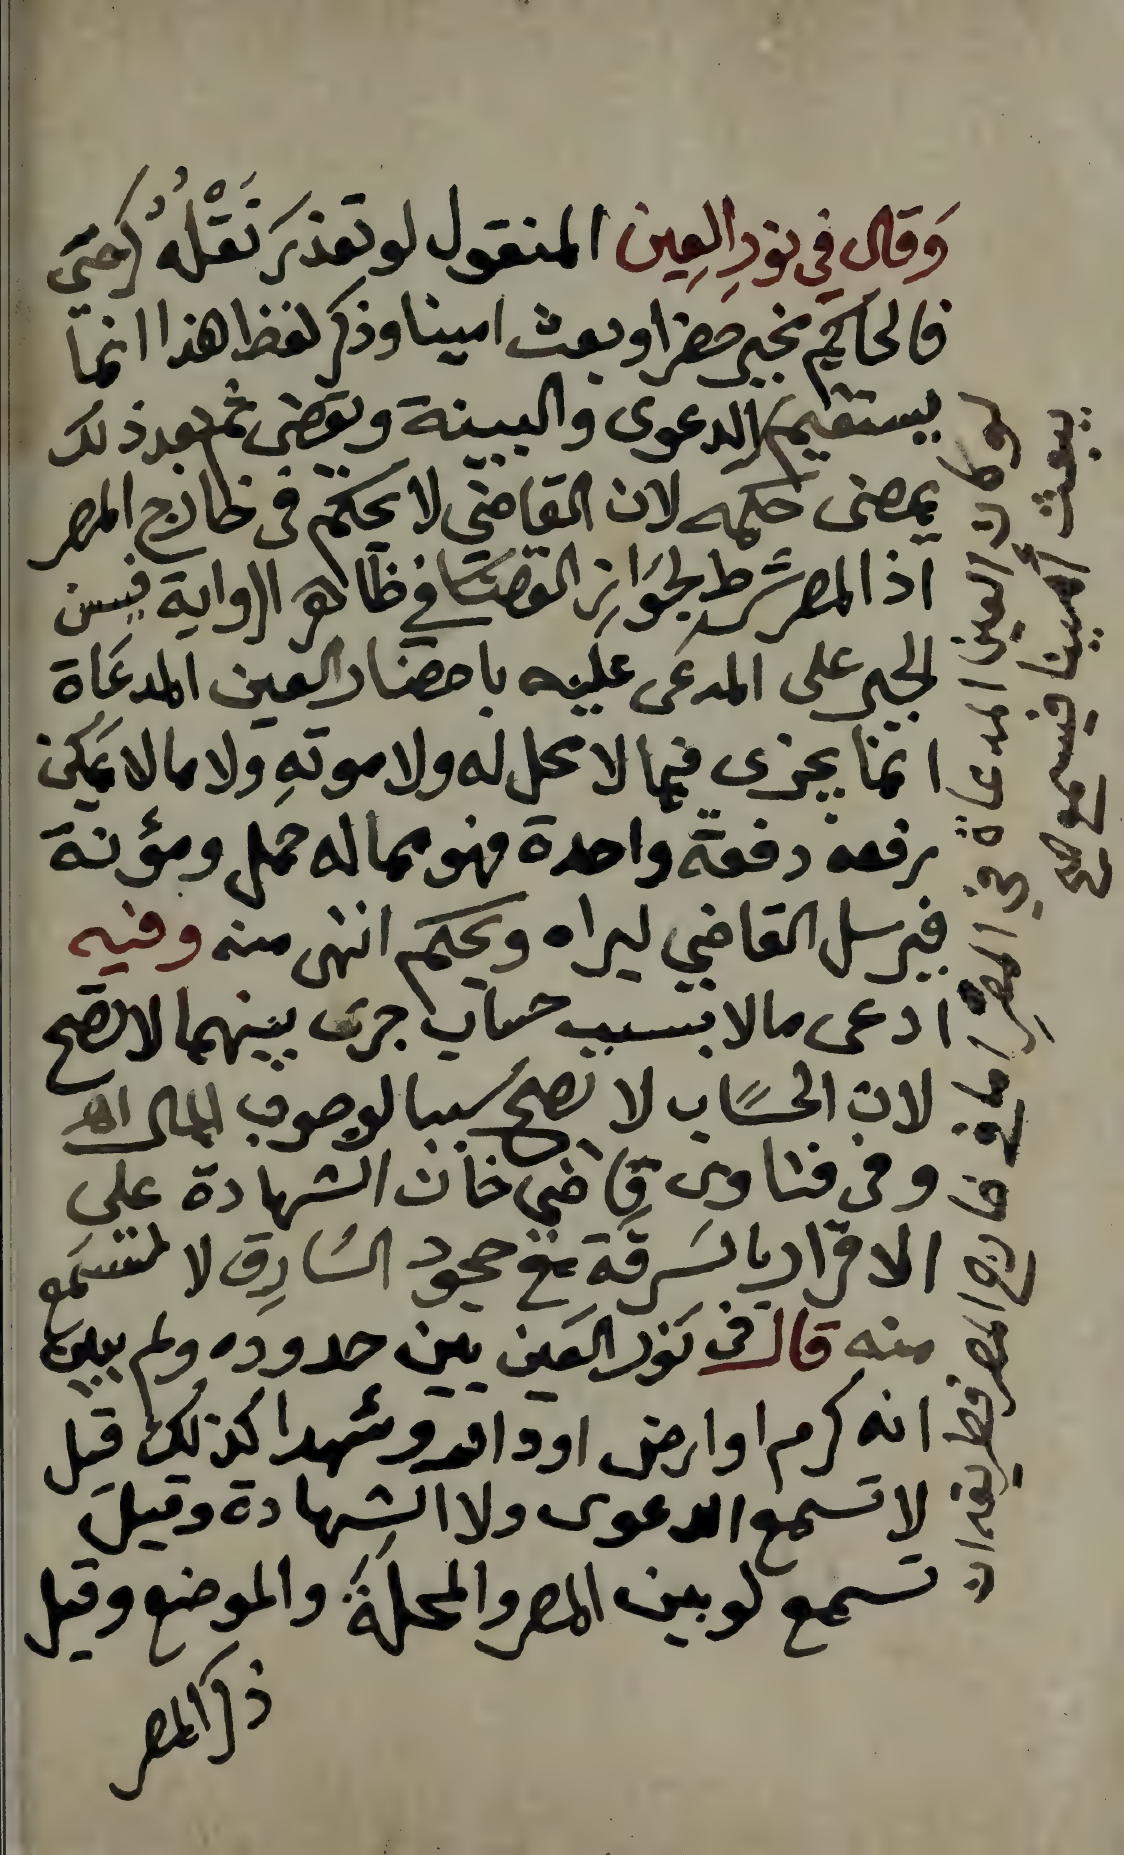 وَقال في نورِ العِين المنقول لو تعذرَ نَقْلُهُ كرحىً
فالحاكم يخير حضرا و بعث امينا وذكر لفظ هذا انمّا
يستقيم الدعوى والبينة ويقضى ثم بعد ذلك
يمضى حكمه لان القاضي لا يحكم فى خارج المصر
اذا المصر شرط لجَوَاز القضا في ظاهر الرواية فليس
الجبر على المدعى عليه باحضار العين المدعَاة
انمّا يجزى فيما لا محل له ولا موتهِ ولا مالا يمكن
رفعه دفعة واحدة فهو مما له حمل ومؤنة
فيرسل القاضي ليراه ويحكم انتهى منه وفيه
ادعى مالا بسبب حساب جرى بينهما لا تصح
لان الحسَاب لا تصح سببا لوجوب المال اه
وفى فتاوى قاضى خان الشهادة على
الاقرار بالسَرقة مع جحود السَارِق لا تسمَع
منه قال فى نور العَين بين حدوده ولم يبين
انه كرم او ارض او دار وشهدا كذلك قيل
لا تسمع الدعوى ولا الشهادة وقيل
تسمع لو بين المصر والمحلة والموضع وقيل
ذكر المصر
لو كان العين المدعاة في المصر اما في خارج المصر فطريقه ان
يبعث أمينا فيسمع صح